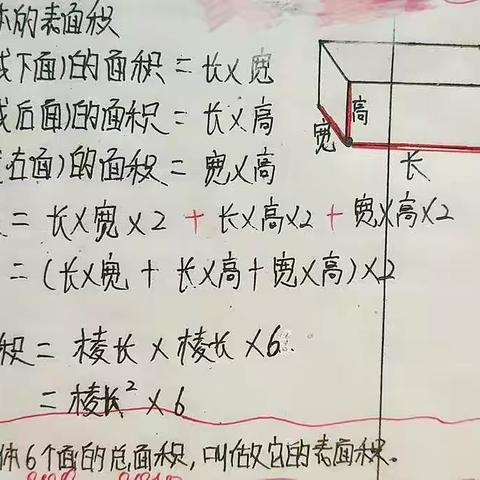 体的表面积
或下面)的面积 = 长×宽
或后面)的面积 = 长×高
右面)的面积 = 宽×高
= 长×宽×2 + 长×高×2 + 宽×高×2
= (长×宽 + 长×高+宽×高)×2
积 = 棱长×棱长×6
= 棱长²×6
体6个面的总面积,叫做它的表面积。
高
宽
长